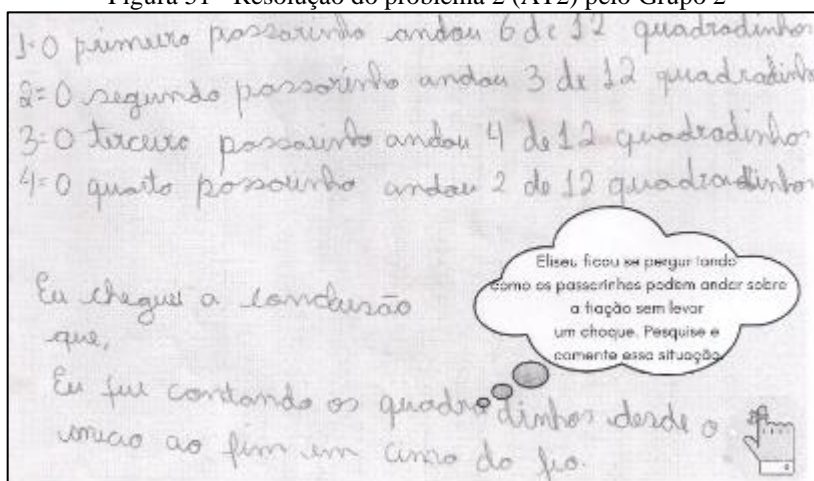 Figura 31 - Resolução do problema 2 (AT2) pelo Grupo 2
1-O primeiro passarinho andou 6 de 12 quadradinhos
2=O segundo passarinho andou 3 de 12 quadradinho
3-O terceiro passarinho andou 4 de 12 quadradinhos
4=O quarto passarinho andou 2 de 12 quadradinhos
Eliseu ficou se perguntando
como os passarinhos podem andar sobre
a fiação sem levar
um choque. Pesquise e
comente essa situação.
Eu cheguei a conclusão
que,
Eu fui contando os quadradinhos desde o
inicio ao fim em cima do fio.